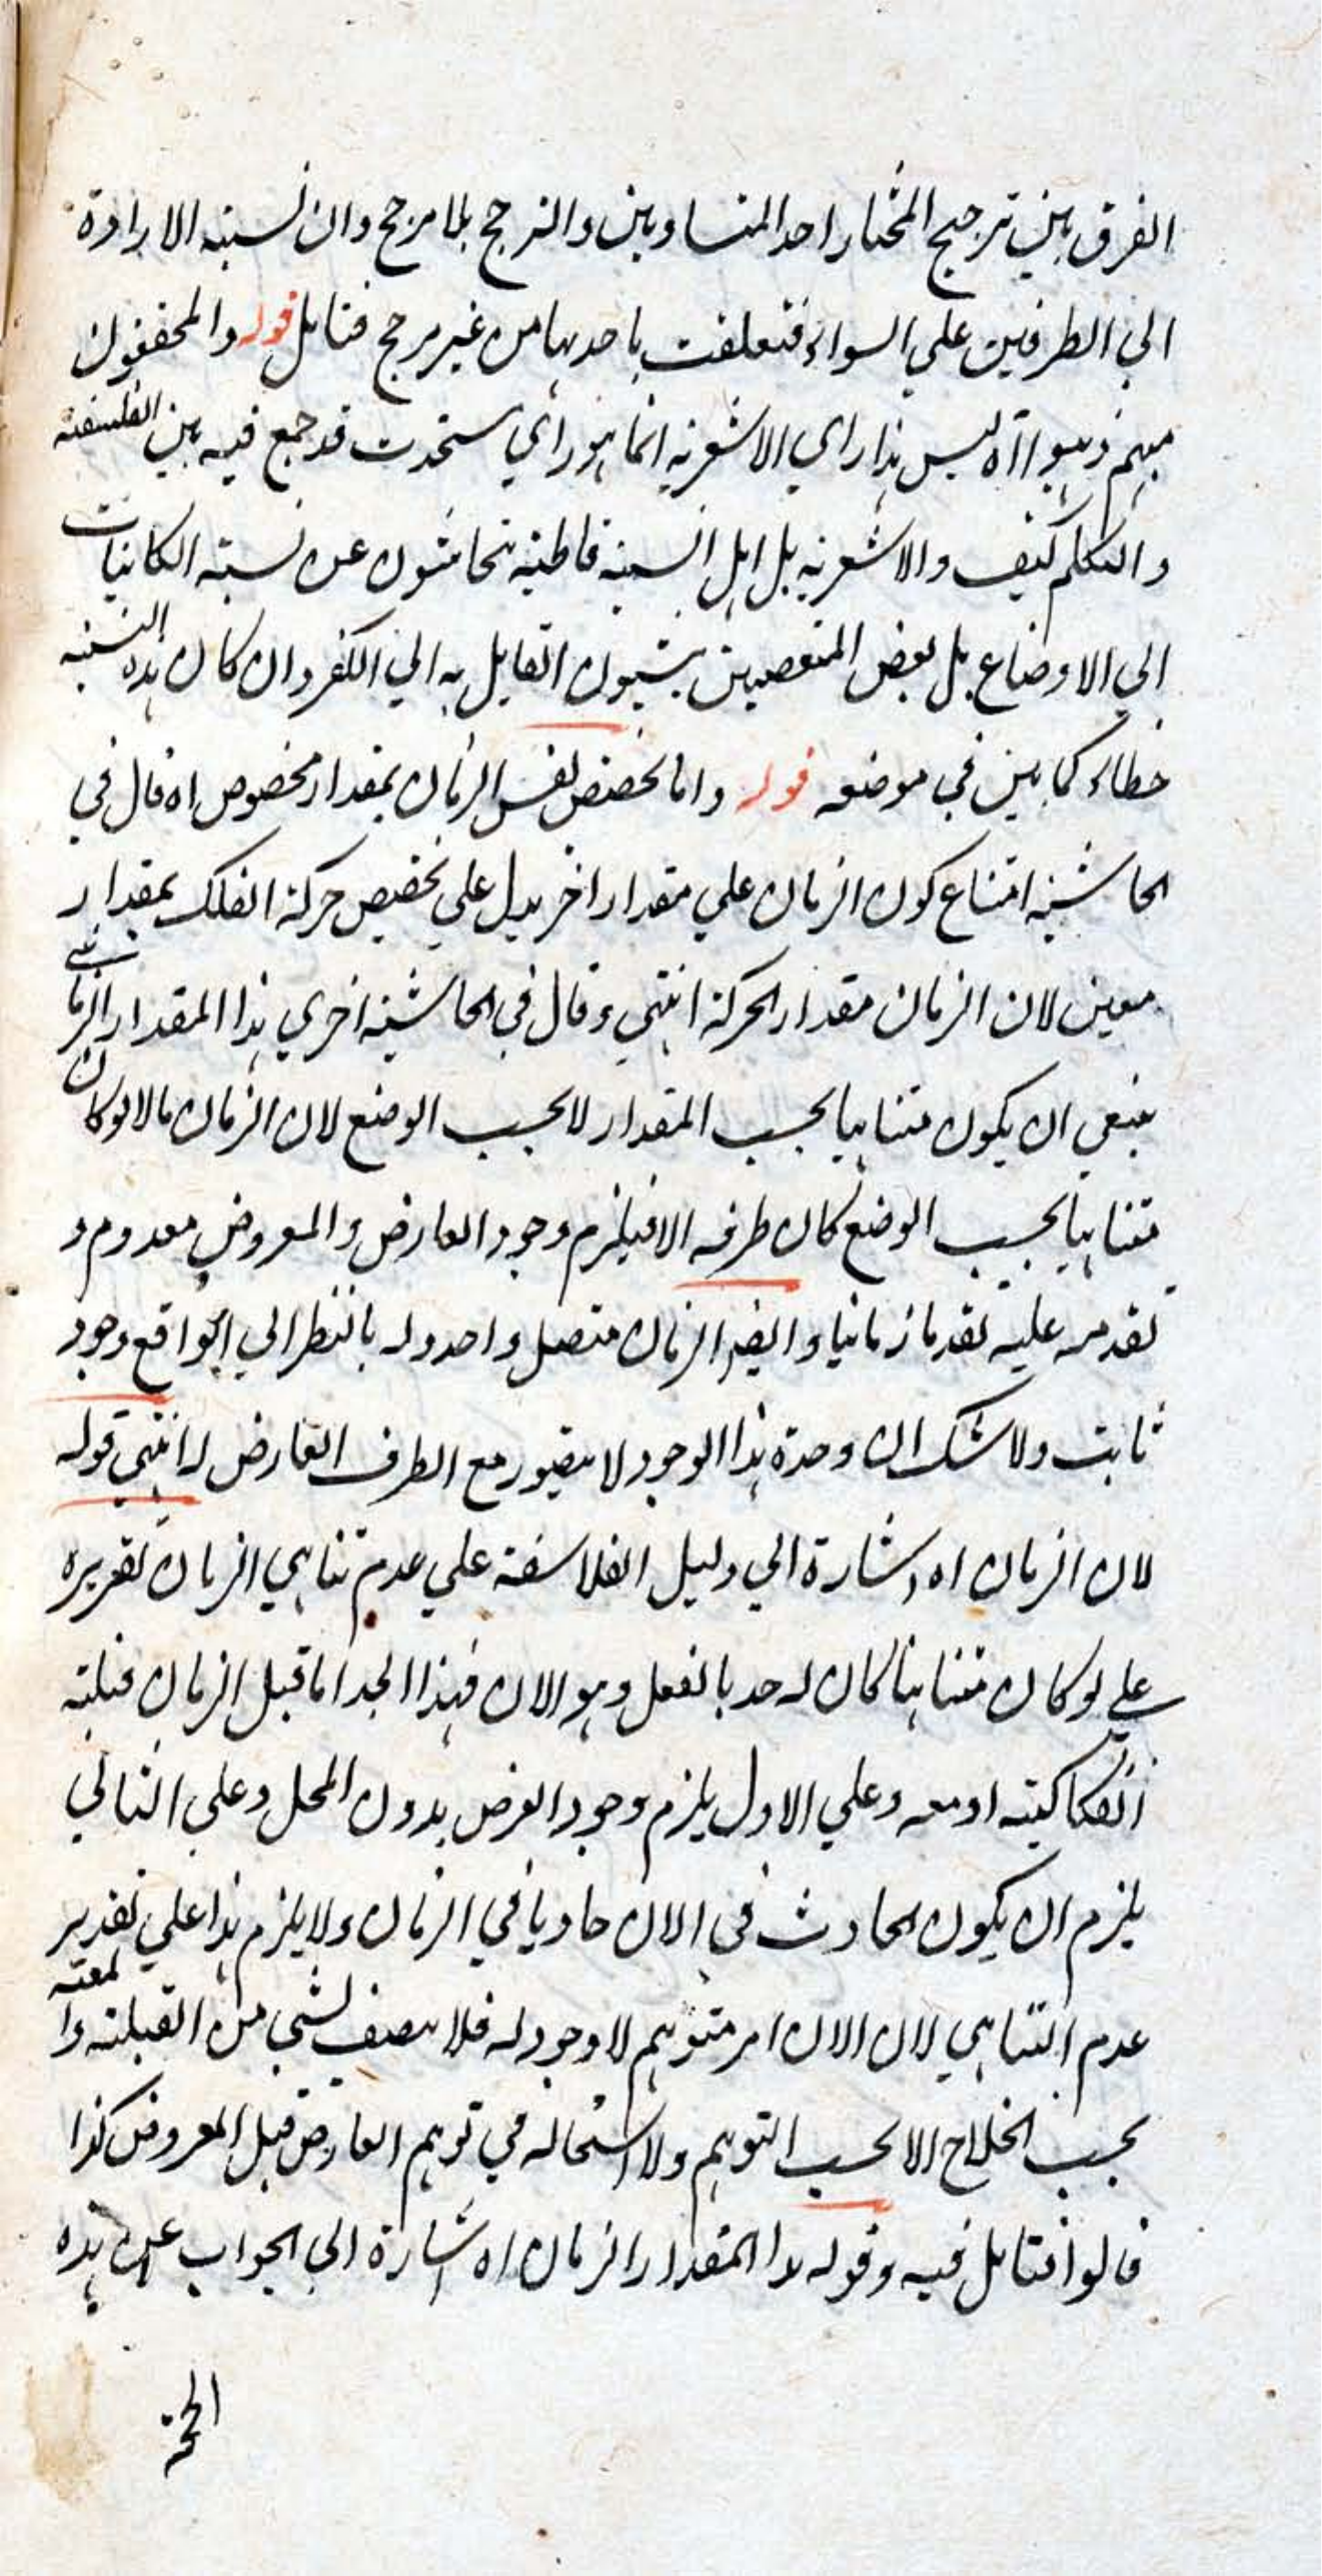 الفرق بين ترجيح المختار احد المتساويين والترجح بلا مرجح وان نسبته الارادة
الي الطرفين علي السواء فتعلقت باحدهما من غير مرجح فتامل قوله والمحققون
منهم ذهبوا اه ليس هذا راي الاشعرية انما هو راي ستحدت قد جمع فيه بين الفلسفة
والكلام كيف والاشعرية بل اهل السنة قاطبة يتحاشون عن نسبة الكائنات
الي الاوضاع بل بعض المتعصبين ينسبون القايل به الي الكفر وان كان هذه النسبة
خطاء كما بين في موضعه قوله واما تخصص نفس الزمان بمقدار مخصوص اه قال في
الحاشية امتناع كون الزمان علي مقدار اخر يدل علي تخصيص حركة الفلك بمقدار
معين لان الزمان مقدار الحركة انتهي وقال في الحاشية اخري هذا المقدار الزماني
ينبغي ان يكون متناهيا بحسب المقدار لا بحسب الوضع لان الزمان مالا لو كان
متناهيا بحسب الوضع كان طرفه الان فيلزم وجود العارض والمعروض معدوم و
تقدمه عليه تقدما زمانيا وايضا الزمان متصل واحد وله بالنظر الي الواقع وجود
ثابت ولا شك ان وحدة هذا الوجود لا يتصور مع الطرف العارض له انتهي قوله
لان الزمان اه اشارة الي دليل الفلاسفة علي عدم تناهي الزمان تقريره
علي لو كان متناهيا كان له حد بالفعل وهو الان فهذا الحد اما قبل الزمان قبلية
انفكاكية او معه وعلي الاول يلزم وجود العرض بدون المحل وعلي الثاني
يلزم ان يكون الحادث في الان حادثا في الزمان ولا يلزم هذا علي تقدير
عدم التناهي لان الان امر متوهم لا وجود له فلا يتصف بشي من القبلية والمعية
بحسب الخارج الا بحسب التوهم ولا استحالة في توهم العارض قبل المعروض كذا
قالوا فتامل فيه وقوله هذا المقدار الزمان اه اشارة الي الجواب عن هذه
الحجة